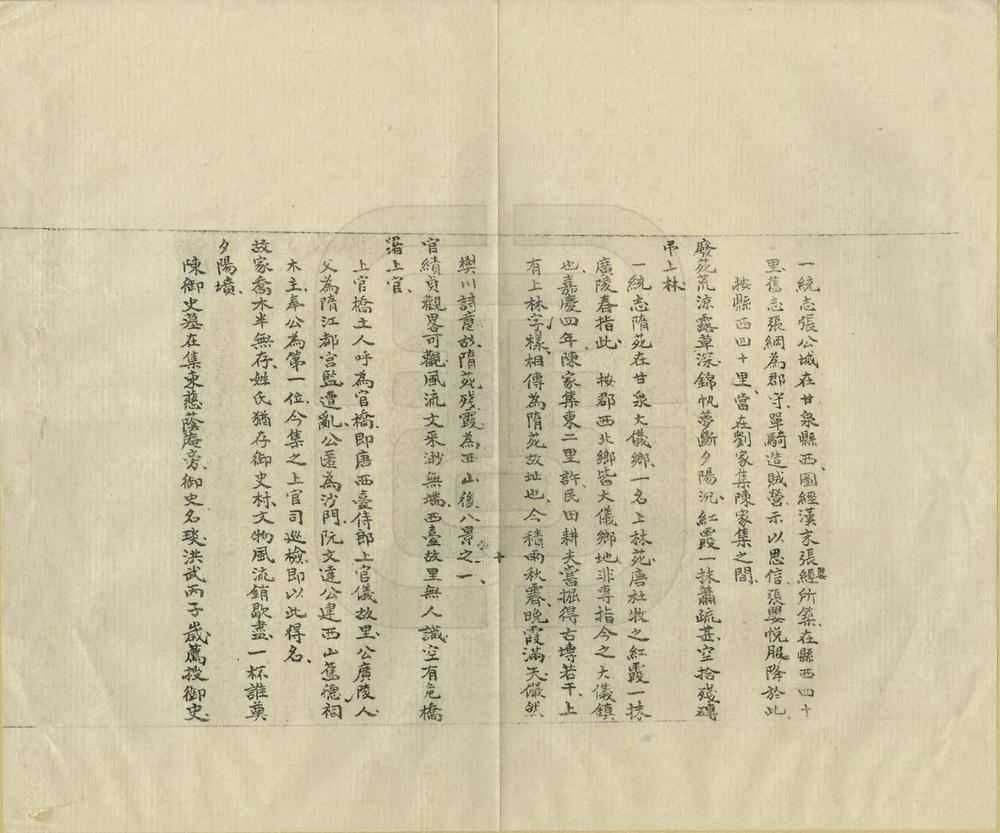 一統志張公城在甘泉縣西圖經漢末張經嬰所築在縣西四十
里舊志張綱為郡守單騎造賊營示以恩信張嬰悅服降於此
按縣西四十里當在劉家集陳家集之間
廢苑荒涼露草深錦帆夢斷夕陽沉紅霞一抹蕭疏甚空拾殘磚
弔上林
一統志隋苑在甘泉大儀鄉一名上林苑唐杜牧之紅霞一抹
廣陵春指此 按郡西北鄉皆大儀鄉地非專指今之大儀鎮
也嘉慶四年陳家集東二里許民田耕夫嘗掘得古塼若干上
有上林字樣相傳為隋苑故址也今積雨秋霽晚霞滿天儼然
樊川詩意故隋苑殘霞為西山後八景之一
官績貞觀畧可觀風流文采渺無端西臺故里無人識空有危橋
署上官
上官橋土人呼為官橋即唐西臺侍郎上官儀故里公廣陵人
父為隋江都宮監遭亂公匿為沙門阮文達公建西山舊德祠
木主奉公為第一位今集之上官司巡檢即以此得名
故家喬木半無存姓氏猶存御史村文物風流銷歇盡一杯誰奠
夕陽墳
陳御史墓在集東慈蔭庵旁御史名琰洪武丙子歲薦授御史